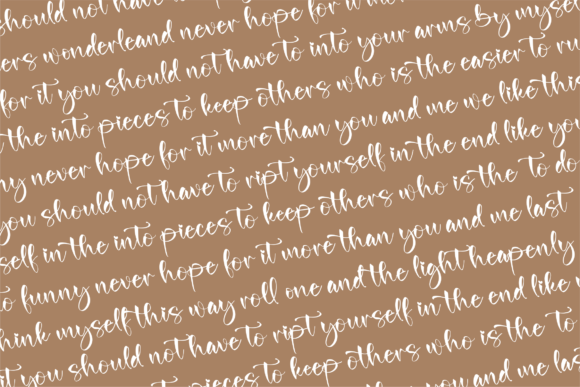 should not have to
ers wonderleand never hope for it mo
for it you should not have to into your arms by myse
the into pieces to keep others who is the easier to ru
ny never hope for it more than you and me we like this
you should not have to ript yourself in the end like you
self in the into pieces to keep others who is the to do
to funny never hope for it more than you and me last
think myself this way roll one and the light heapenly
it you should not have to ript yourself in the end like
pieces to keep others who is the to
you and me las